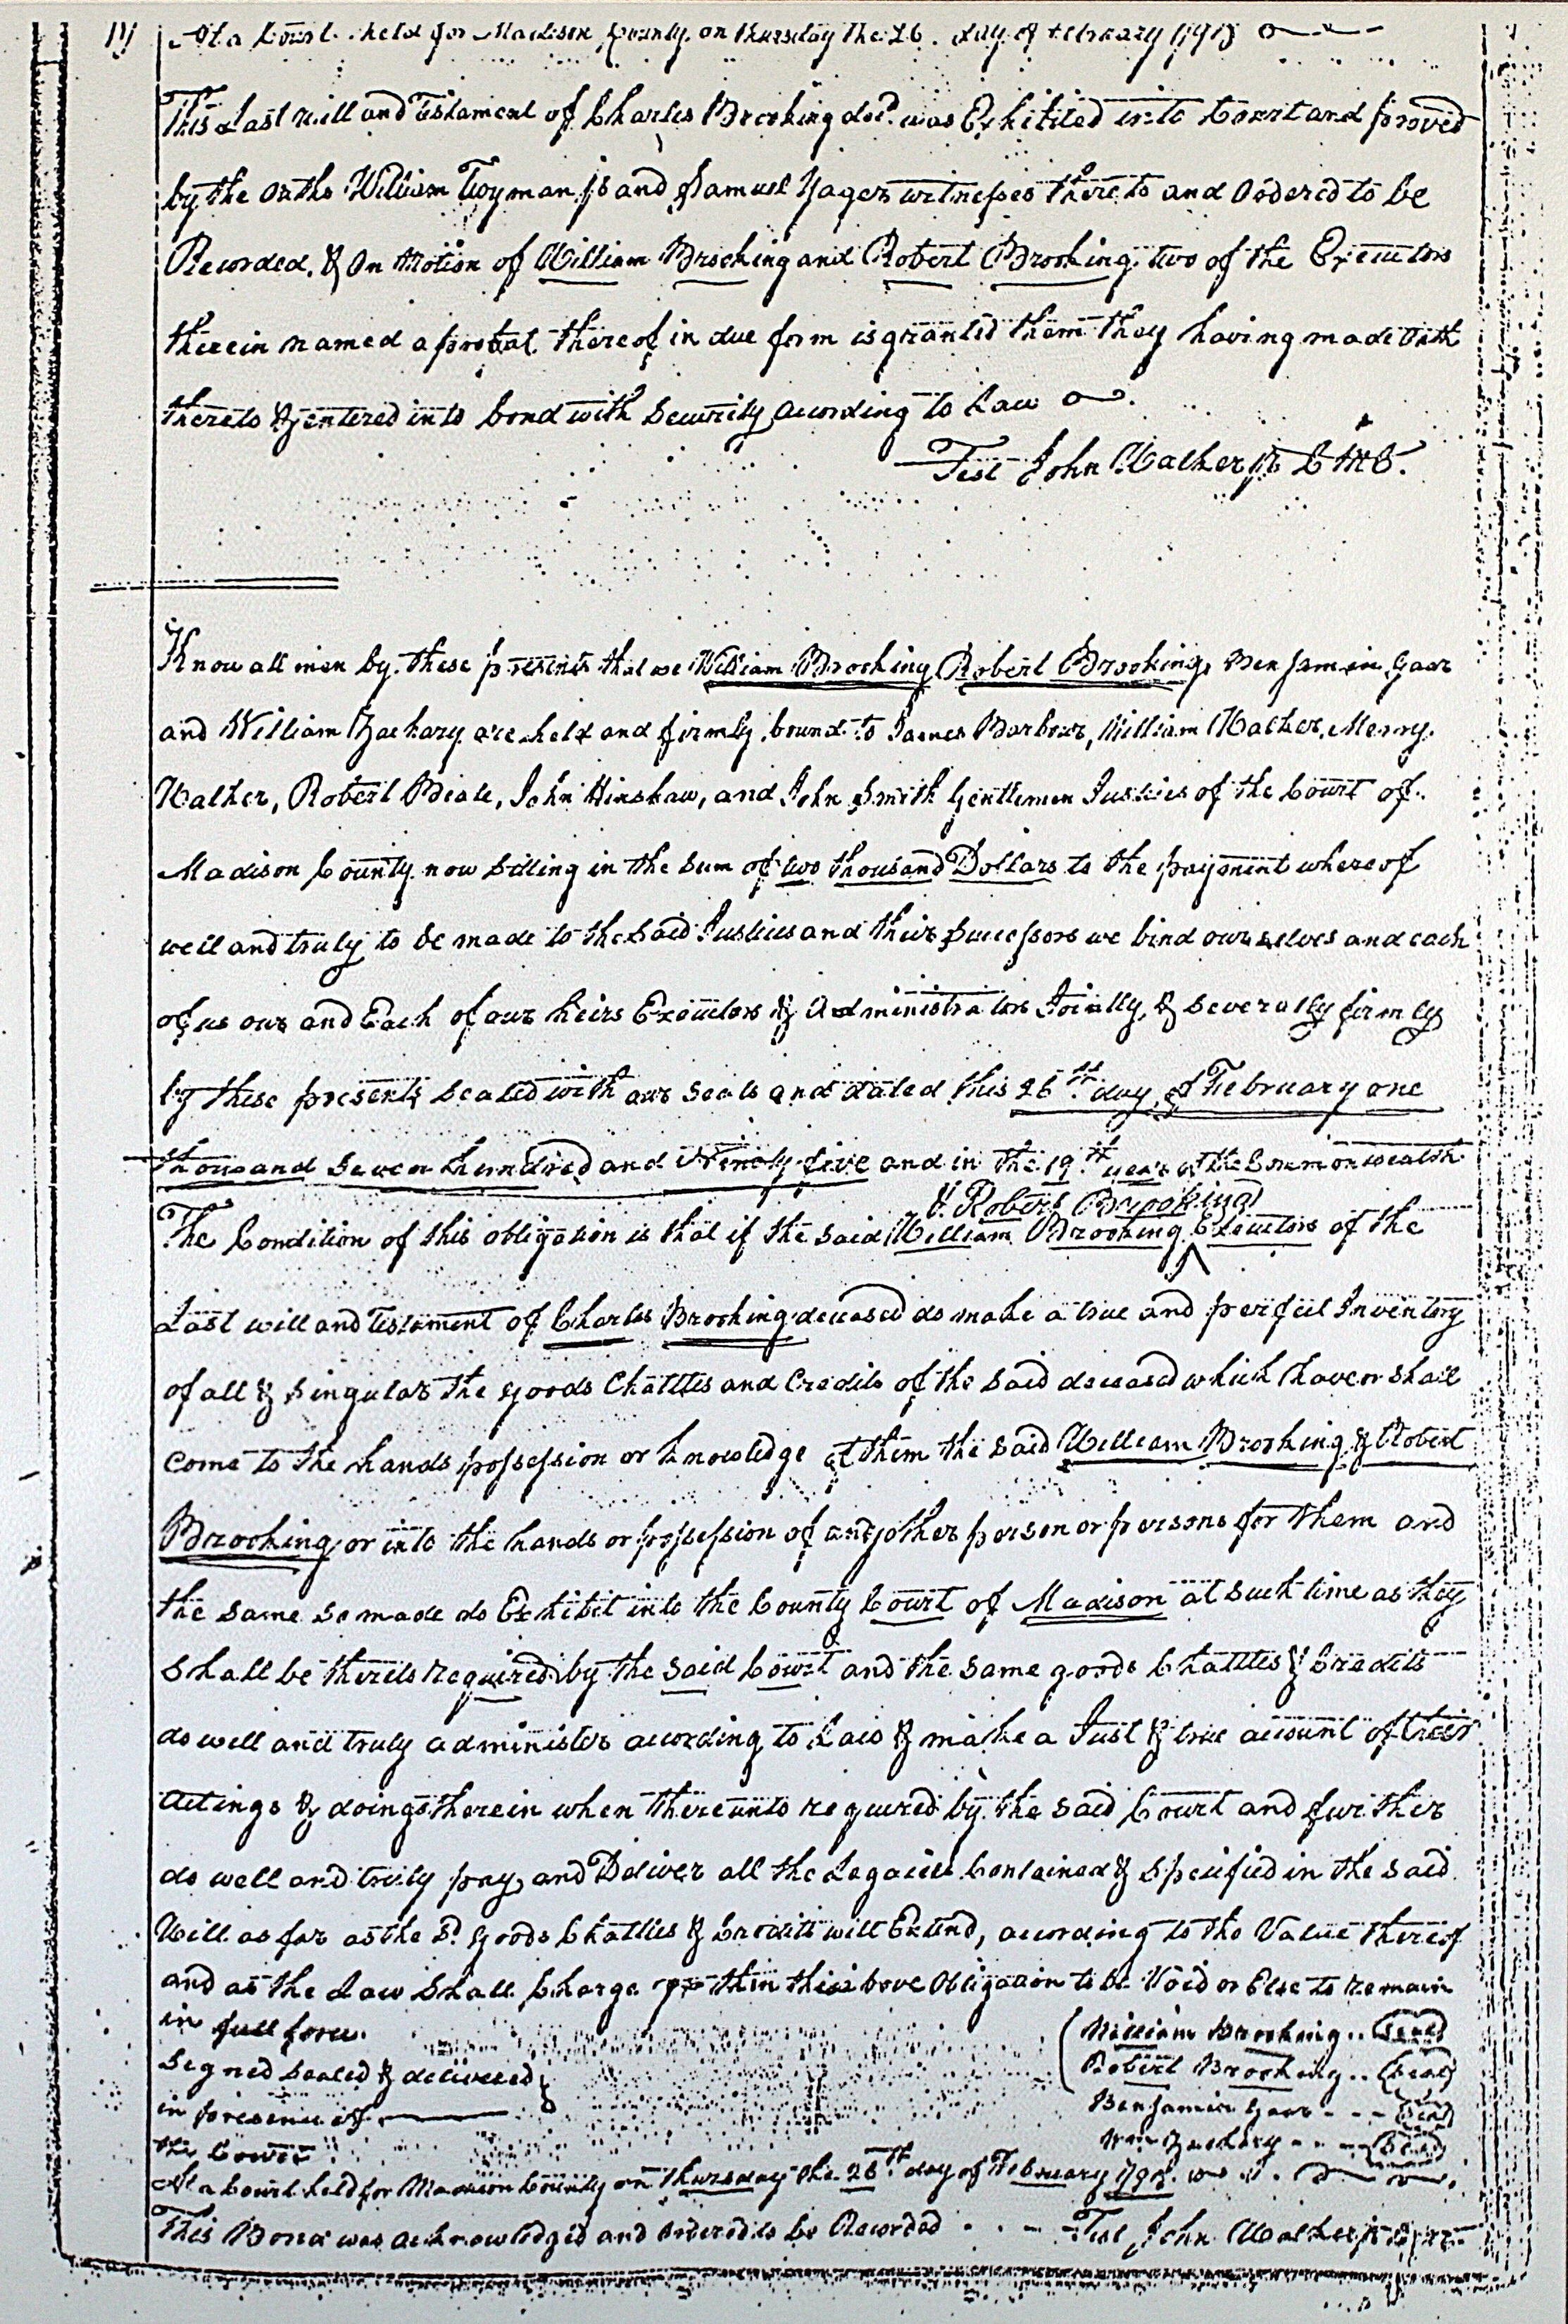 At a Court held for Madison County on Thursday the 26 day of February 1795
This Last will and Testament of Charles Brocking decd. was Exhibited into Court and proved
by the oaths William Twyman jr and Samuel Yager witnesses thereto and Ordered to be
Recorded. & On Motion of William Brocking and Robert Brocking two of the Executors
therein named a probat thereof in due form is granted them they having made Oath
thereto & entered into bond with Security according to Law
Test John Walker jr C M C.
Know all men by these presents that we William Brocking Robert Brocking, Benjamin Gaar
and William Zachary are held and firmly bound to James Barbour, William Walker, Merry
Walker, Robert Beale, John Hinshaw, and John Smith Gentlemen Justices of the Court of
Madison County now Sitting in the Sum of two thousand Dollars to the payment whereof
well and truly to be made to the Said Justices and their Successors we bind ourselves and each
of us our and Each of our heirs Executors & Administrators Jointly & Severally firmly
by these presents Sealed with our Seals and dated this 26th day of February one
thousand Seven hundred and Ninety five and in the 19th year of the Commonwealth
& Robert Brocking
The Condition of this obligation is that if the Said William Brocking Executors of the
Last will and Testament of Charles Brocking deceased do make a true and perfect Inventory
of all & Singular the goods Chattles and Credits of the Said deceased which have or Shall
come to the hands possession or knowledge of them the Said William Brocking & Robert
Brocking or into the hands or possession of any other person or persons for them and
the Same So made do Exhibit into the County Court of Madison at Such time as they
Shall be thereto required by the Said Court and the Same goods Chattles & Credits
do well and truly administer according to Law & make a Just & true account of their
Actings & doings therein when thereunto required by the Said Court and further
do well and truly pay and Deliver all the Legacies Contained & Specified in the Said
Will as far as the Sd. goods Chattles & Credits will Extend, according to the Value thereof
and as the Law Shall Charge then this above Obligation to be Void or Else to Remain
in full force.
Signed Sealed & delivered
in presence of
the Court
William Brocking .. Seal
Robert Brocking .. Seal
Benjamin Gaar - - - Seal
Wm Zachary - - - Seal
At a Court held for Madison County on Thursday the 26th day of February 1795.
This Bond was acknowledged and Ordered to be Recorded . . - Test John Walker jr